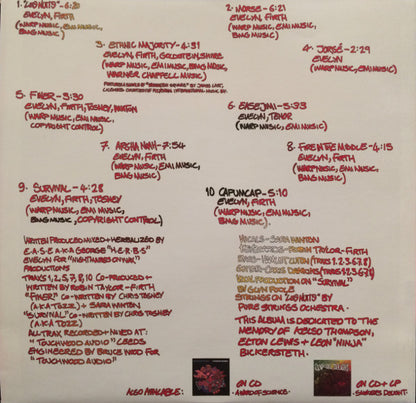 1. "Los Ninos" - 6:20
Evelyn, Firth
(Warp Music, EMI Music,
BMG Music)
2. Norse - 6:21
Evelyn, Firth
(Warp Music, EMI Music,
BMG Music)
3. Ethnic Majority - 4:31
Evelyn, Firth, Goldstein, Shire
(Warp Music, EMI Music, BMG Music,
Warner Chappell Music)
4. Jorge - 2:29
Evelyn, Firth
(Warp Music, EMI Music)
5. Finer - 5:30
Evelyn, Firth, Toshey, Winton
(Warp Music, EMI Music,
Copyright Control)
6 Easejimi - 5:33
Evelyn, Tenor
(Warp Music, EMI Music)
7. Argha Noah - 7:54
Evelyn, Firth
(Warp Music, EMI Music,
BMG Music)
8. Fire in the Middle - 4:15
Evelyn, Firth
(Warp Music, EMI Music,
BMG Music)
9. Survival - 4:28
Evelyn, Firth, Toshey
(Warp Music, EMI Music,
BMG Music, Copyright Control)
10 Capumcap - 5:10
Evelyn, Firth
(Warp Music, EMI Music,
BMG Music).
Written Produced Mixed + Herbalized by
E.A.S.E A.K.A George "H-E-R-B-S"
Evelyn for "Nightmares on Wax"
Productions
Trax 1, 2, 5, 7, 8, 10 Co-Produced +
Written by Robin Taylor-Firth
"Finer" Co-Written by Chris Toshey
(A.K.A Tozz) + Sara Winton
"Survival" Co-Written by Chris Toshey
(A.K.A Tozz)
All Trax Recorded + Mixed at:
"Touchwood Audio" Leeds
Engineered by Bruce Wood for
"Touchwood Audio"
Vocals - Sara Winton
Keyboards - Robin Taylor-Firth
Bass - Hamlet Luton (Trax 1, 2, 3, 6, 7, 8)
Guitar - Chris Dawkins (Trax 1, 2, 3, 6, 7, 8)
Vocal Production on "Survival"
by Glyn Poole
Strings on "Los Ninos" by
Pure Strings Ochestra.
This album is dedicated to the
memory of Kelso Thompson,
Elton Lewis + Leon "Ninja"
Bickersteth.
Also Available:
on CD
- A Word of Science.
on CD + LP
- Smokers Delight.